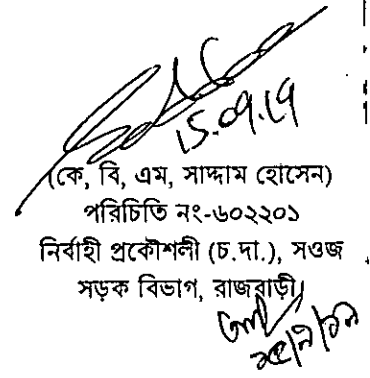 15.09.19
(কে, বি, এম, সাদ্দাম হোসেন)
পরিচিতি নং-৬০২২০১
নির্বাহী প্রকৌশলী (চ.দা.), সওজ
সড়ক বিভাগ, রাজবাড়ী।